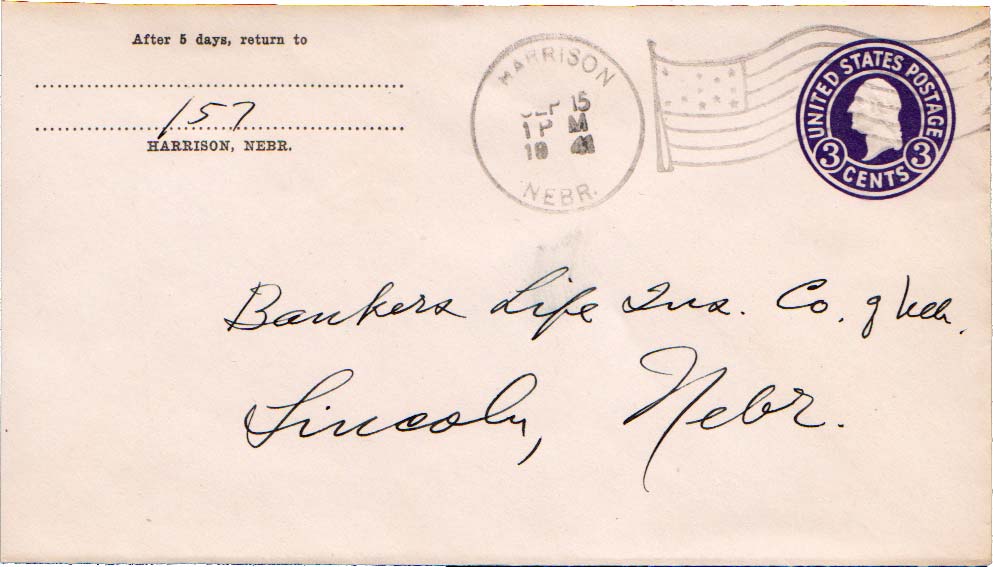 After 5 days, return to
157
HARRISON, NEBR.
HARRISON
SEP 15
1 P M
19 41
NEBR.
UNITED STATES POSTAGE
3 CENTS 3
Bankers Life Ins. Co. of Neb.
Lincoln, Nebr.